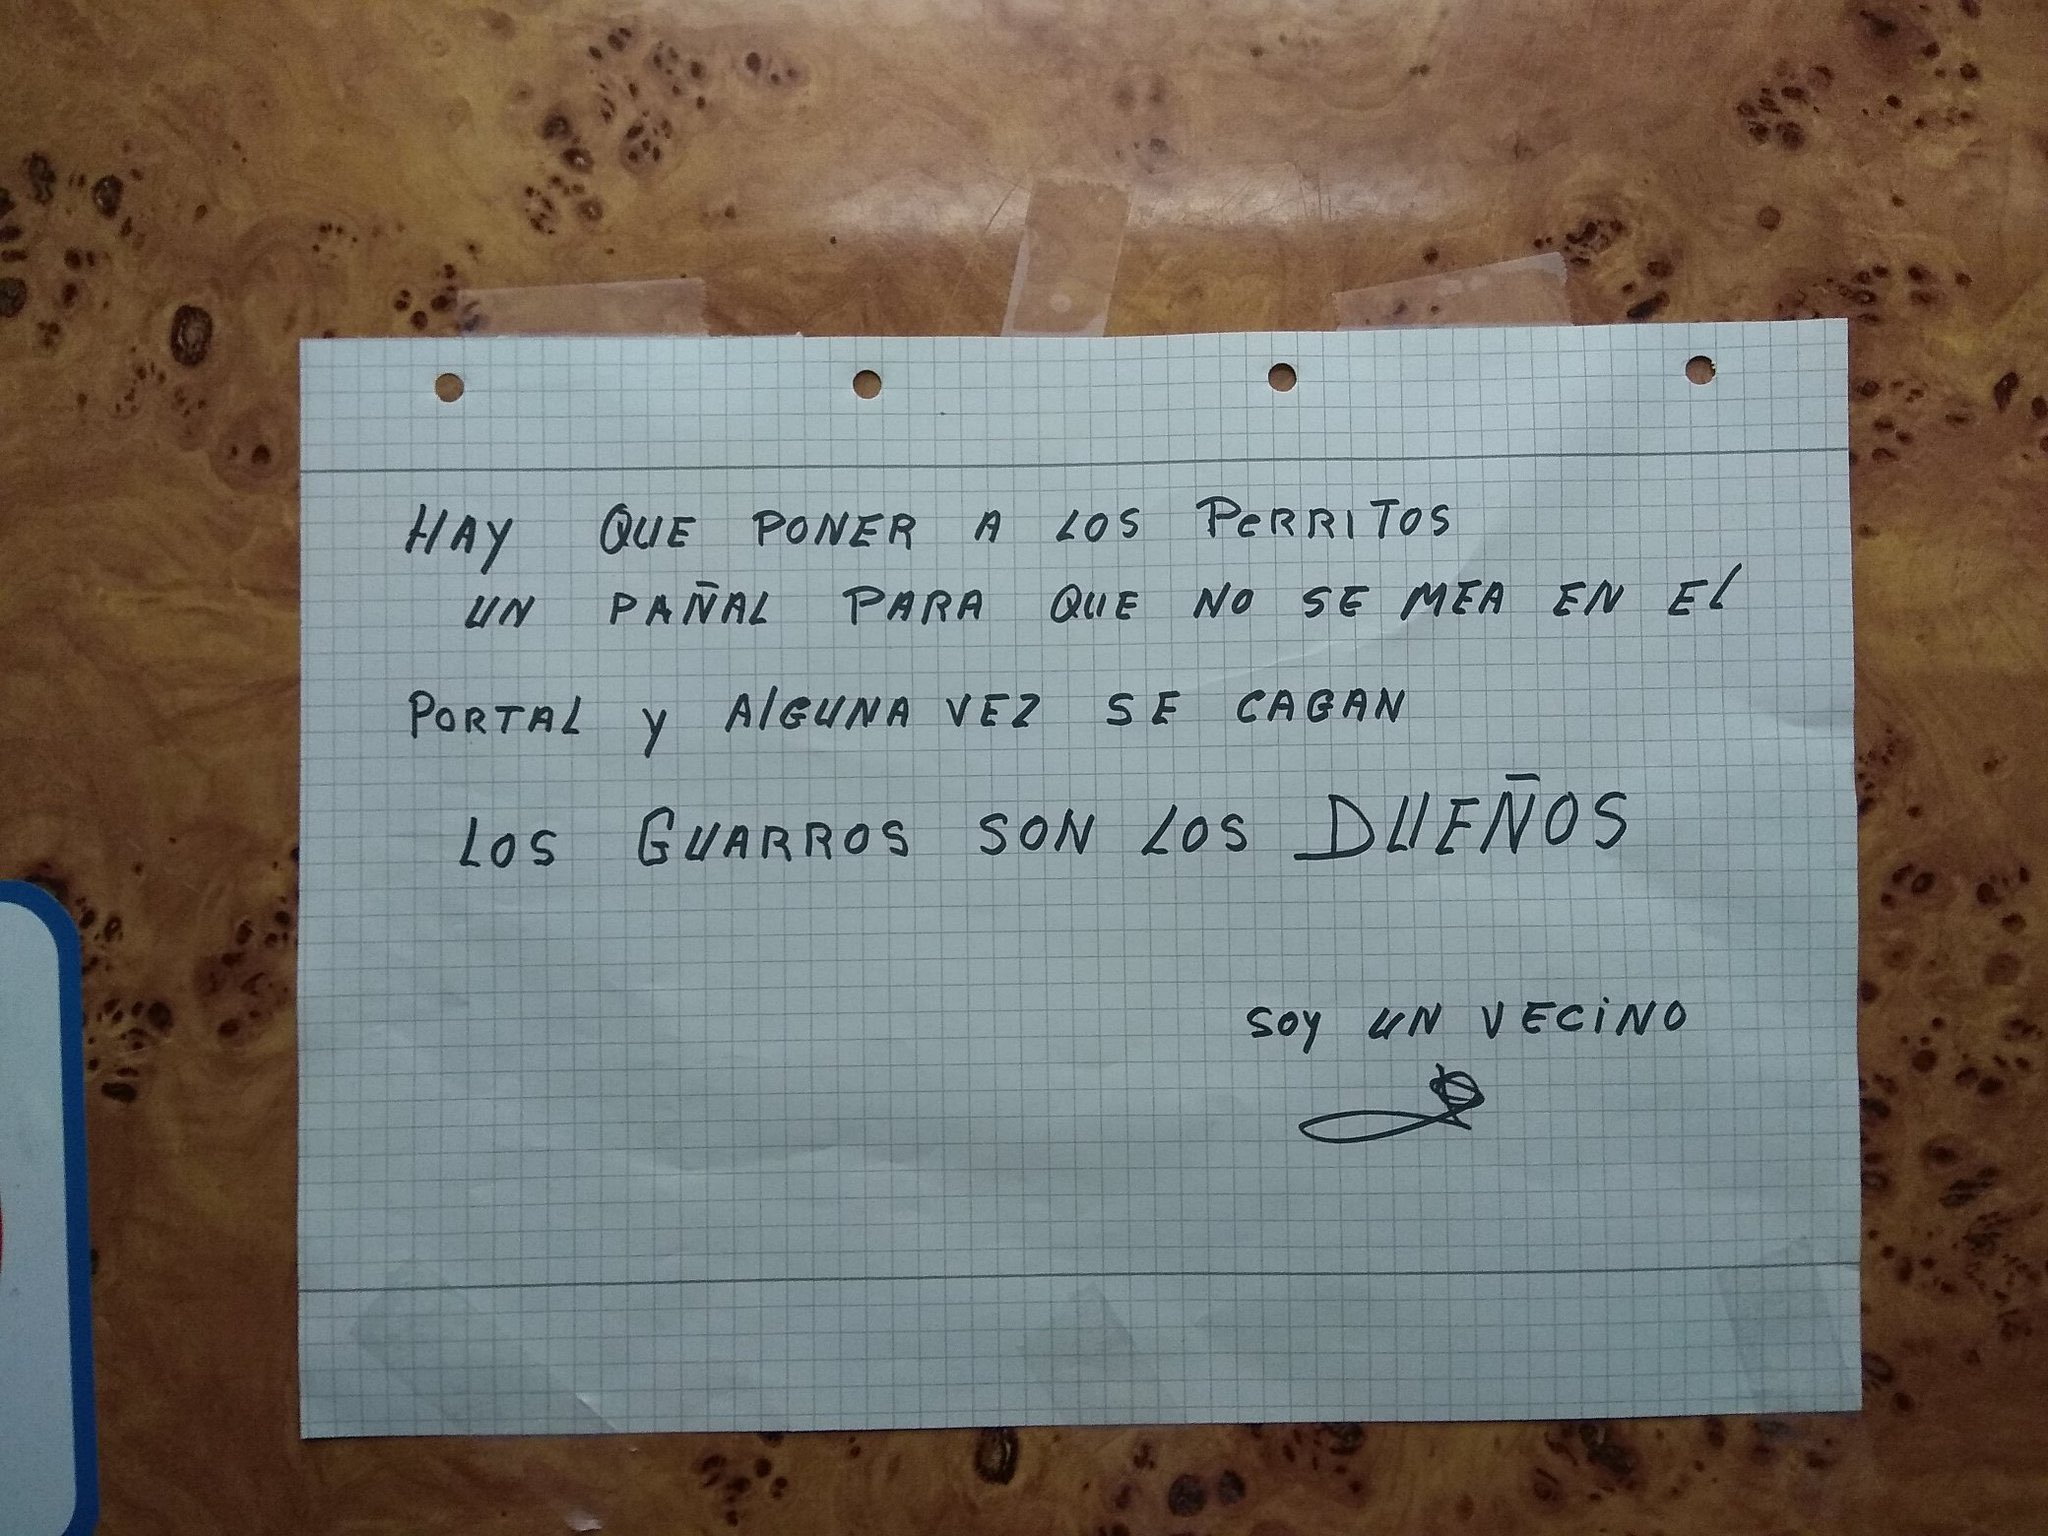 HAY QUE PONER A LOS PERRITOS
UN PAÑAL PARA QUE NO SE MEA EN EL
PORTAL Y ALGUNA VEZ SE CAGAN
LOS GUARROS SON LOS DUEÑOS
SOY UN VECINO